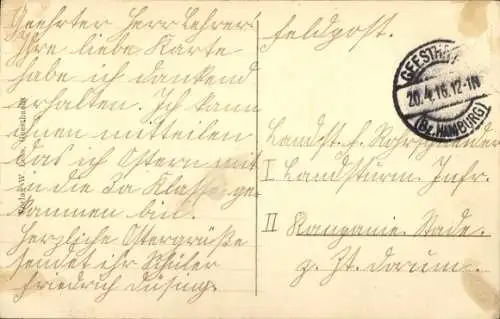 Geehrter Herr Lehrer!
Ihre liebe Karte
habe ich dankend
erhalten. Ich kann
Ihnen mitteilen
das ich Ostern mit
in die 3a Klasse ge-
kammen bin.
Herzliche Ostergrüße
sendet ihr Schüler
Friedrich Düsing.
Feldpost.
GEESTHACHT
20.4.16.12-1N
(Bz. HAMBURG)
Landst. f.
I Landsturm. Infr.
II Kompanie. Stade.
z. Zt. Dorum.
Verlag W. Geesthacht